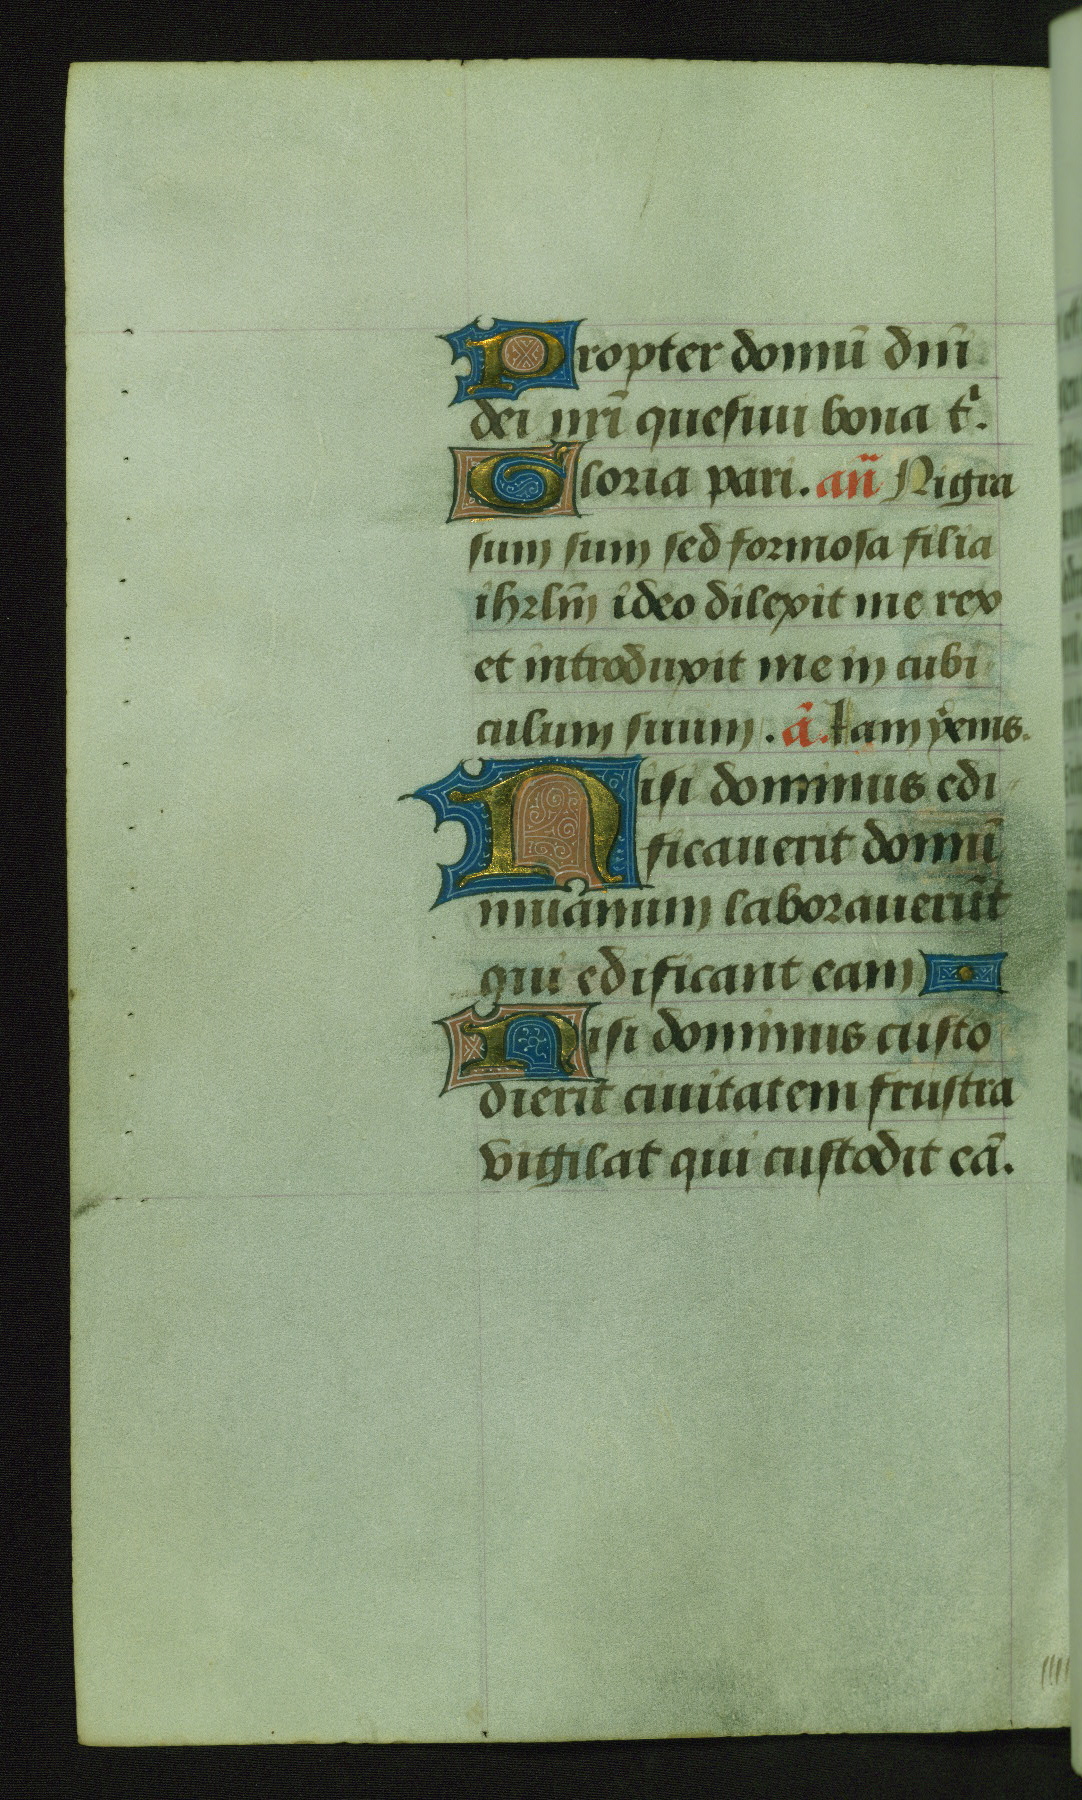 Propter domū dn̄i
dei nr̄i quesiui bona t͛.
Gloria patri. an̄ Nigra
sum sum sed formosa filia
ihrl̄m ideo dilexit me rex
et introduxit me in cubi
culum suum. ā. Iam
Nisi dominus edi
ficauerit domū
inuanum laborauerūt
qui edificant eam
Nisi dominus custo
dierit ciuitatem frustra
vigilat qui custodit eā.